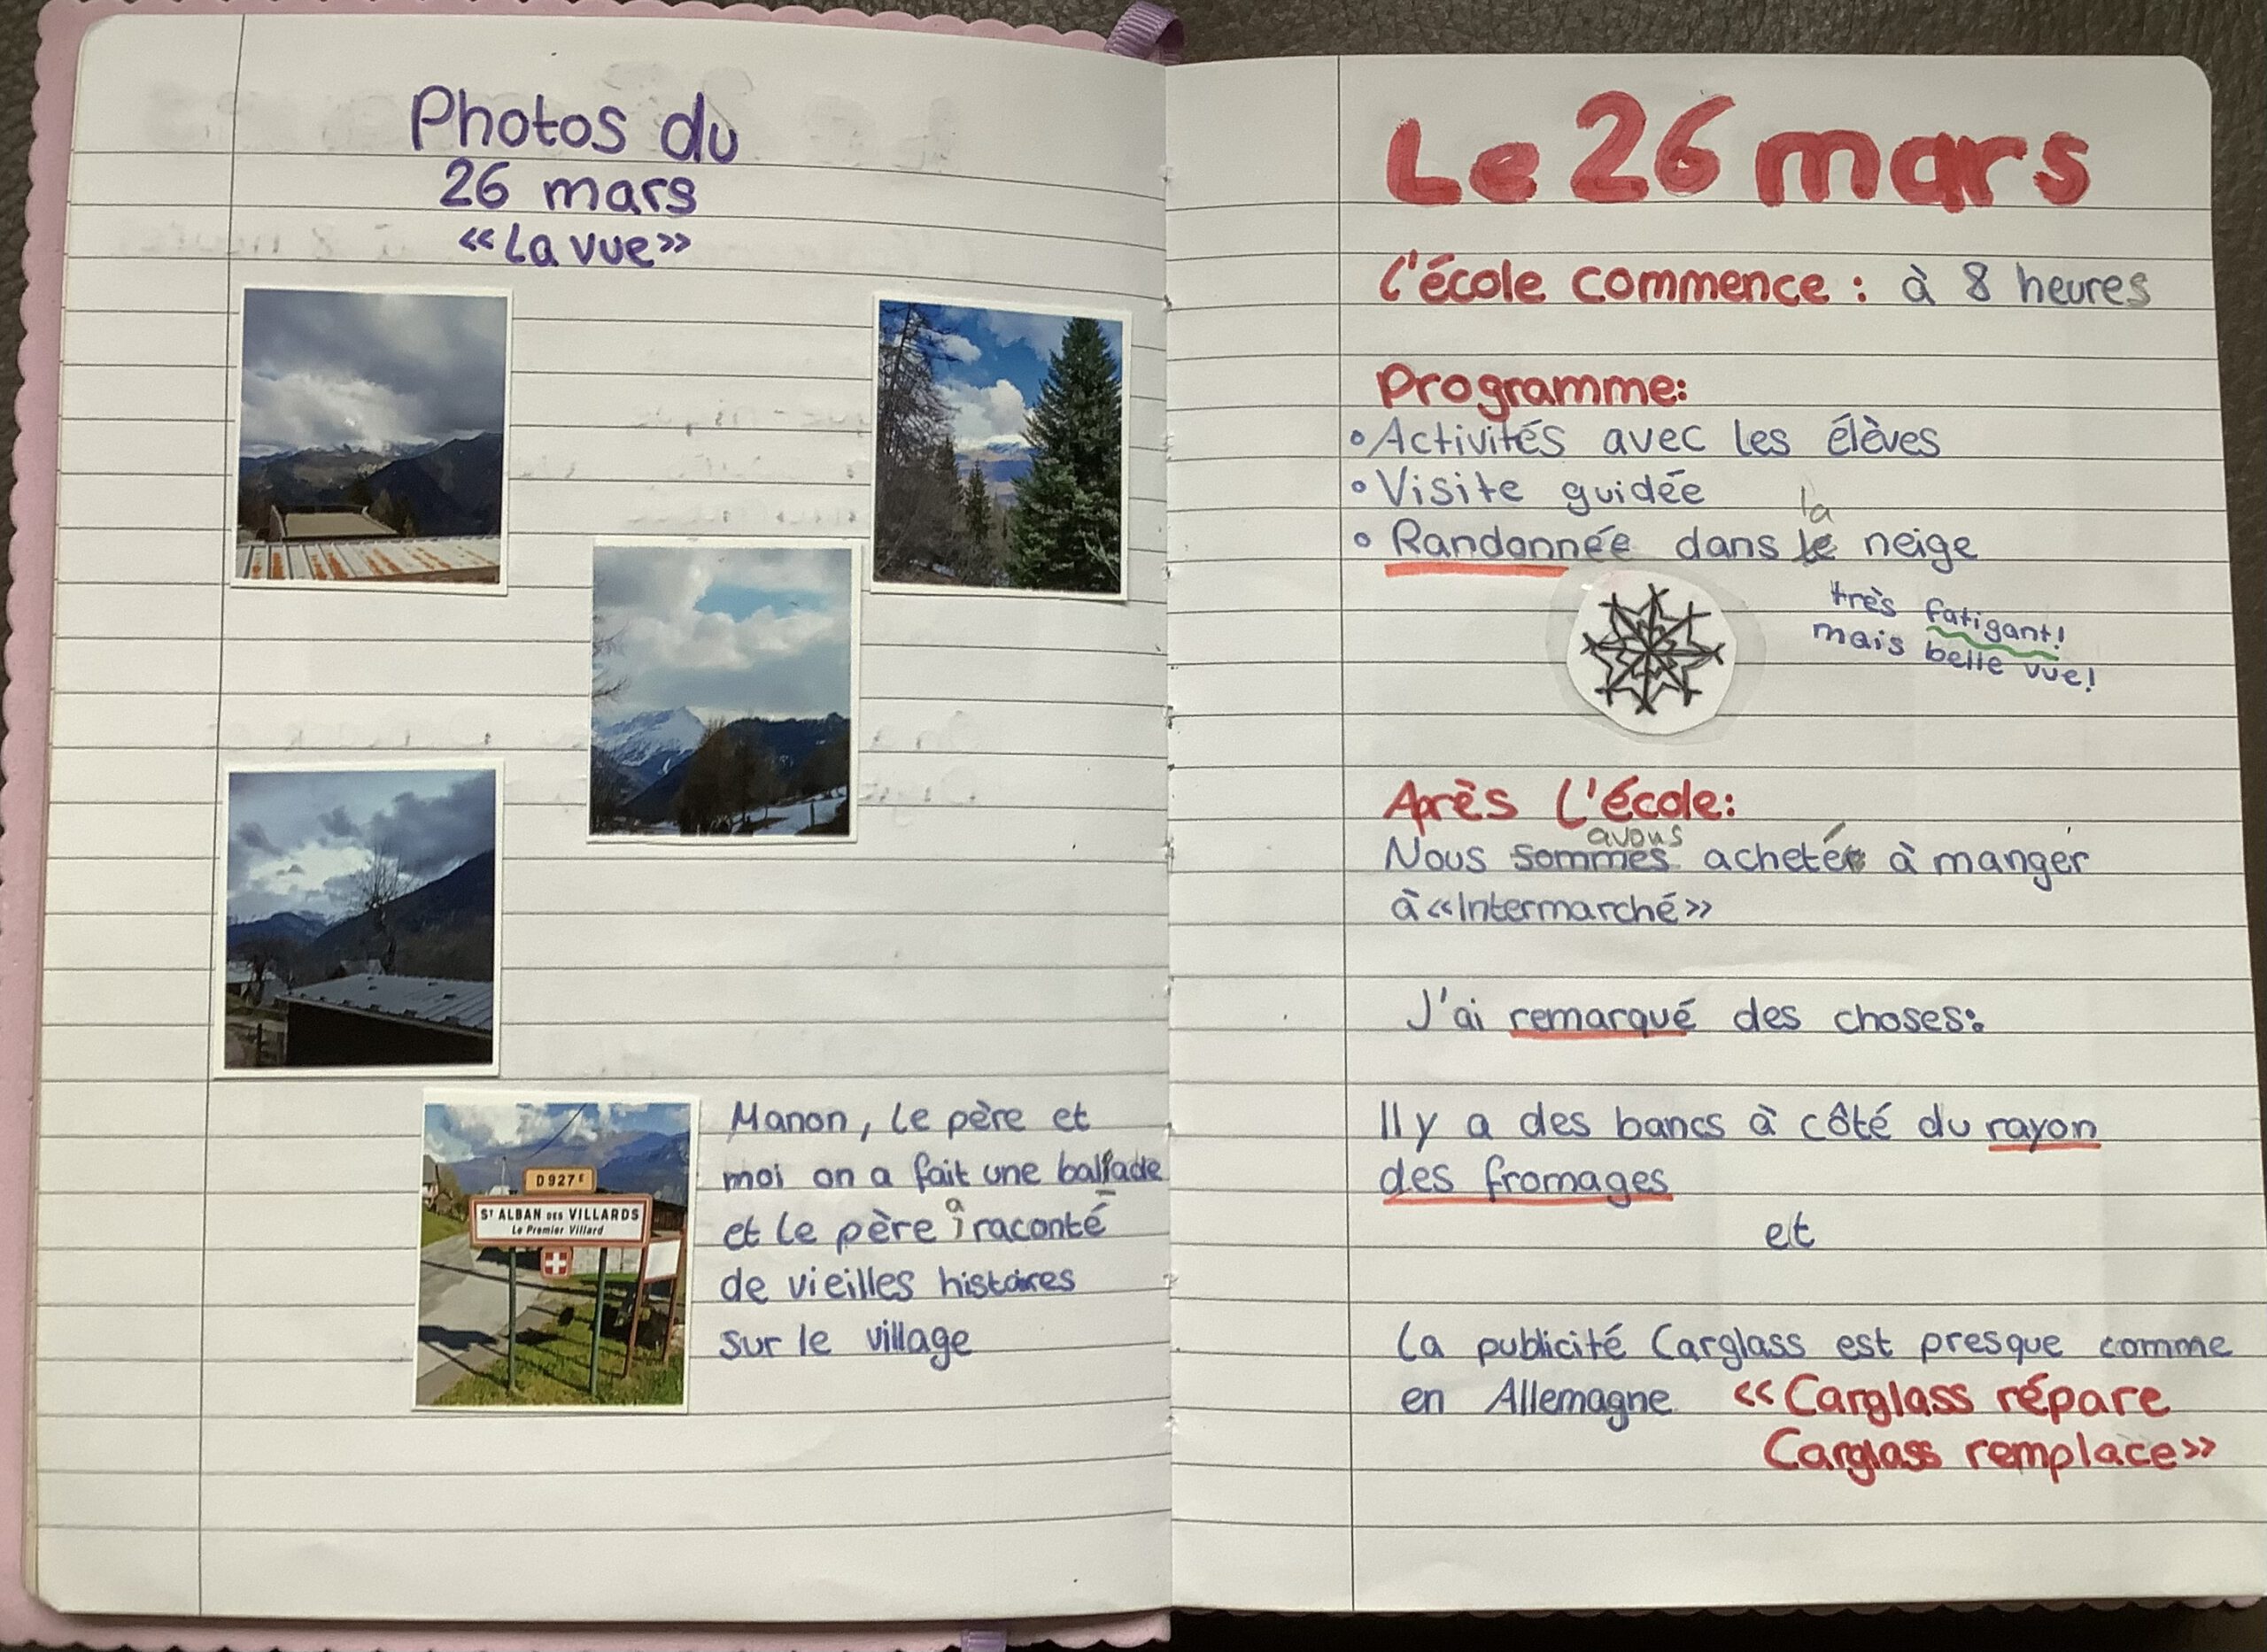 Photos du
26 mars
«La vue»
D927E
ST ALBAN DES VILLARDS
Le Premier Villard
Manon, le père et
moi on a fait une ballade
et le père a raconté
de vieilles histoires
sur le village
Le 26 mars
L'école commence : à 8 heures
Programme:
• Activités avec les élèves
• Visite guidée
la
• Randonnée dans le neige
très fatigant!
mais belle vue!
Après l'école:
avons
Nous sommes acheté à manger
à «Intermarché»
J'ai remarqué des choses:
Il y a des bancs à côté du rayon
des fromages
et
La publicité Carglass est presque comme
en Allemagne «Carglass répare
Carglass remplace»